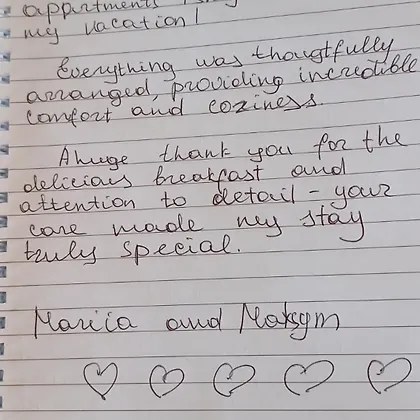 appartments
my vacation!
Everything was thougtfully
arranged, providing incredible
comfort and coziness.
A huge thank you for the
delicious breakfast and
attention to detail - your
care made my stay
truly special.
Mariia and Maksym